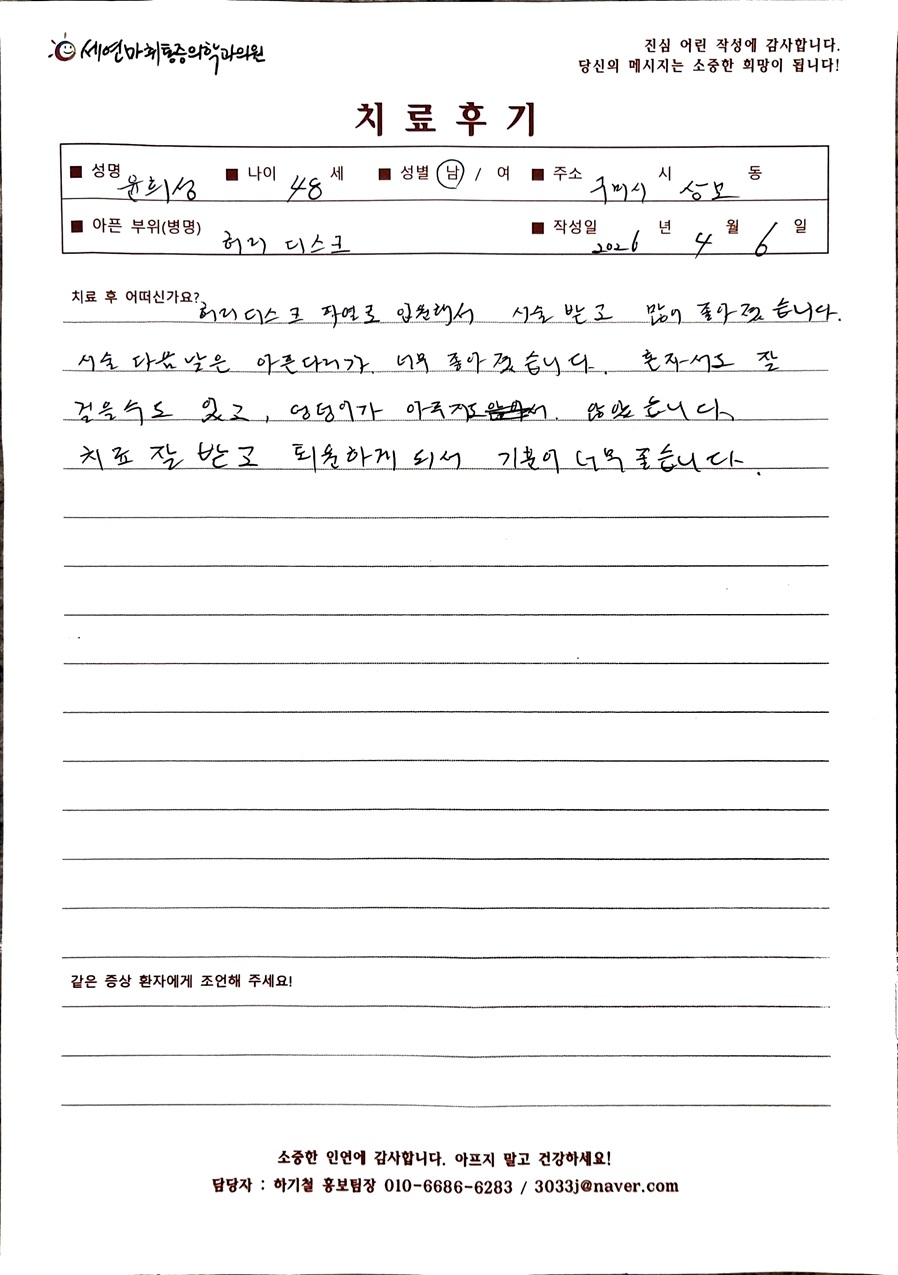 세연마취통증의학과의원
진심 어린 작성에 감사합니다.
당신의 메시지는 소중한 희망이 됩니다!
치료후기
■ 성명 윤희성 ■ 나이 48 세 ■ 성별 남 / 여 ■ 주소 구미시 시 상모 동
■ 아픈 부위(병명) 허리 디스크 ■ 작성일 2026 년 4 월 6 일
치료 후 어떠신가요? 허리디스크 파열로 입원해서 시술 받고 많이 좋아졌습니다.
시술 다음날은 아픈다리가 너무 좋아졌습니다. 혼자서도 잘
걸을수도 있고, 엉덩이가 아프지도 않았습니다.
치료 잘 받고 퇴원하게 되서 기분이 너무 좋습니다.
같은 증상 환자에게 조언해 주세요!
소중한 인연에 감사합니다. 아프지 말고 건강하세요!
담당자 : 하기철 홍보팀장 010-6686-6283 / 3033j@naver.com